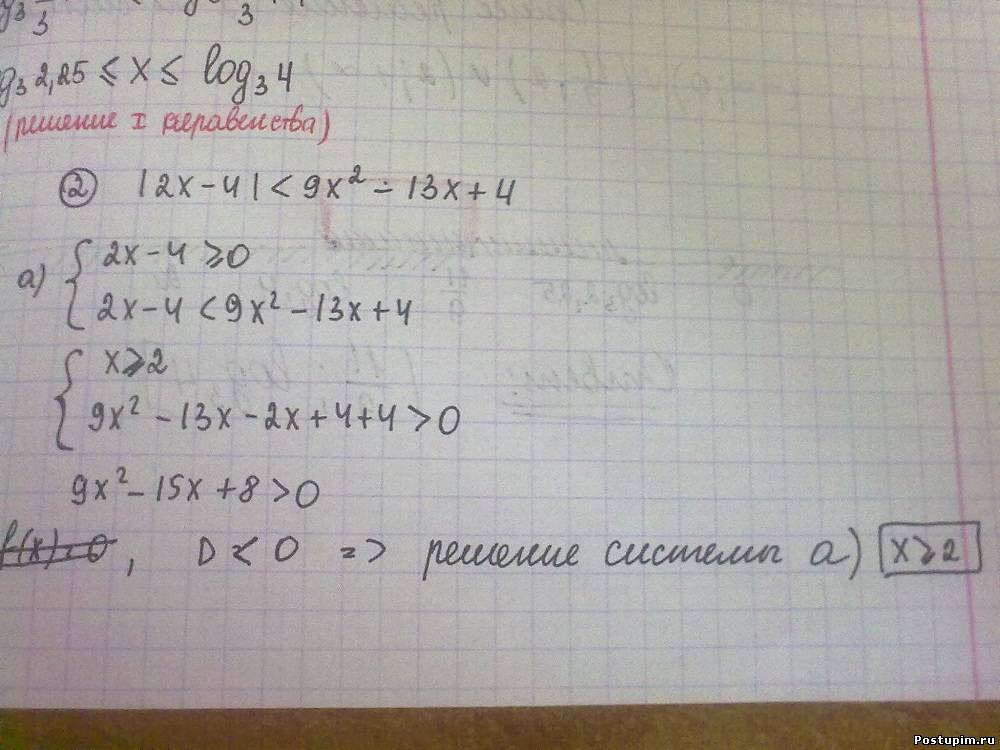 2,25 ≤ x ≤ log₃4
(решение I неравенства)
② |2x-4| < 9x² - 13x + 4
а) { 2x-4 ≥ 0
2x-4 < 9x² - 13x + 4
{ x ≥ 2
9x² - 13x - 2x + 4 + 4 > 0
9x² - 15x + 8 > 0
f(x)=0, D < 0 => решение системы а) x ≥ 2
Postupim.ru